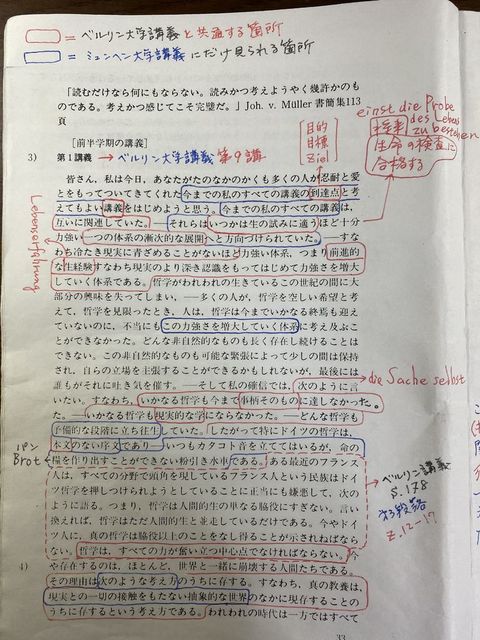 = ベルリン大学講義と共通する箇所
= ミュンヘン大学講義にだけ見られる箇所
「読むだけなら何にもならない。読みかつ考えようやく幾許かのも
のである。考えかつ感じてこそ完璧だ。」Joh. v. Müller 書簡集113
頁
einst die Probe
des Lebens
zu bestehen
生命の検査に
合格する
目的
目標
Ziel
[前半学期の講義]
3) 第1講義 → ベルリン大学講義 第9講
皆さん、私は今日、あなたがたのなかのかくも多くの人が忍耐と愛
とをもってついてきてくれた今までの私のすべての講義の到達点と考
えてもよい講義をはじめようと思う。今までの私のすべての講義は、
互いに関連していた。―それらはいつかは生の試みに適うほど十分
力強い一つの体系の漸次的な展開へと方向づけられていた。―すな
わち冷たき現実に青ざめることがないほど力強い体系、つまり前進的
な生経験すなわち現実のより深き認識をもってはじめて力強さを増大
していく体系である。哲学がわれわれの生きているこの世紀の間に大
部分の興味を失ってしまい、―多くの人が、哲学を空しい希望と考
えて、哲学を見限ったとき、人は、哲学は今までいかなる終焉も迎え
ていないのに、不当にもこの力強さを増大していく体系に考え及ぶこ
とができなかった。どんな非自然的なものも長く存在し続けることは
できない。この非自然的なものも可能な緊張によって少しの間は保持
され、自らの立場を主張することができるかもしれないが、最後には
誰もがそれに吐き気を催す。―そして私の確信では、次のように言
いたい。すなわち、いかなる哲学も今まで事柄そのものに達しなかった。
―いかなる哲学も現実的な学にならなかった。―どんな哲学も
予備的な段階に立ち往生していた。したがって特にドイツ哲学は、
本文のない序文であり―いつもカタコト音を立ててはいるが、命の
糧を作り出すことができない粉引き水車である。ある最近のフランス
人は、すべての分野で頭角を現しているフランス人という民族はドイ
ツ哲学を押しつけられようとしていることに正当にも嫌悪して、次の
ように語る。つまり、哲学は人間的生の単なる脇役にすぎない。言い
換えれば、哲学はただ人間的生と並走しているだけである。今やドイ
ツ人に、真の哲学は脇役以上のことをなし得ることが示されねばなら
ない。哲学は、すべての力が奮い立つ中心点でなければならない。今
4) や存在するのは、ほとんど、世界と一緒に崩壊する人間たちである。
その理由は次のような考え方のうちに存する。すなわち、真の教養は、
現実との一切の接触をもたない抽象的な世界のなかに現存することの
うちに存するという考え方である。われわれの時代は一方ではすべて
33
Lebenserfahrung
die Sache selbst
パン
Brot
ベルリン講義
S. 178
第3段落
Z. 12-17